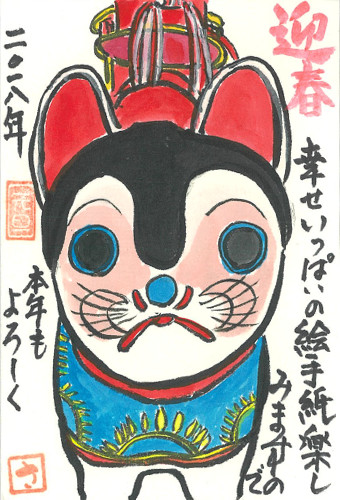 迎春
幸せいっぱいの絵手紙楽し
みますの
で
本年も
よろしく
二〇一八年